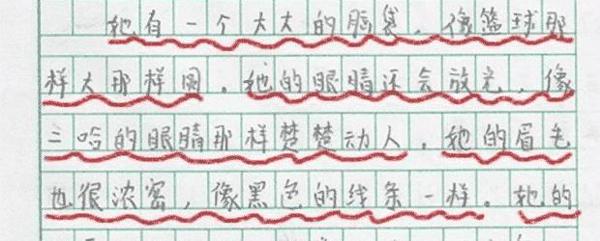 她有一个大大的脑袋，像篮球那
样大那样圆。她的眼睛还会放光，像
二哈的眼睛那样楚楚动人。她的眉毛
也很浓密，像黑色的线条一样。她的